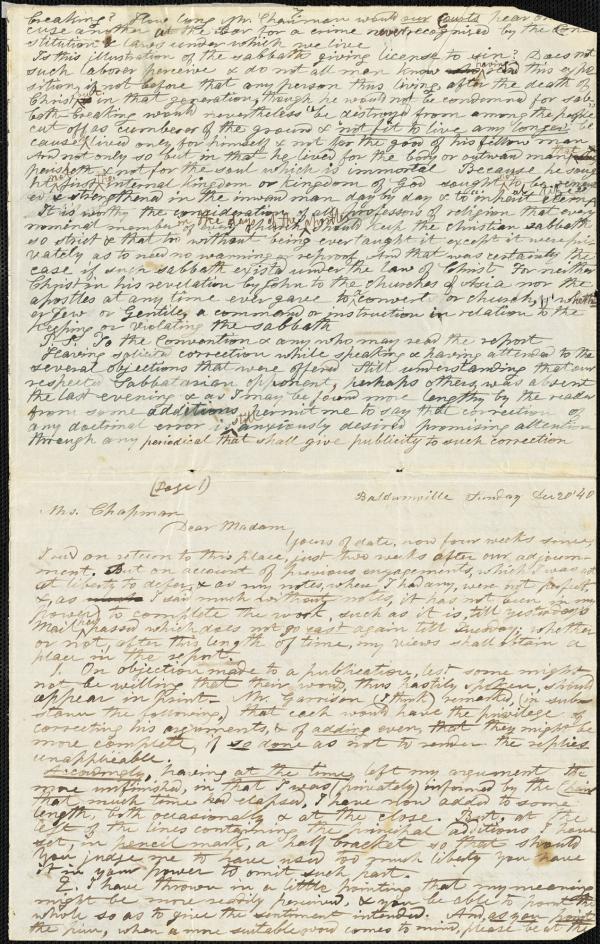 breaking? How long Mr. Chairman would our Courts hear one
cuse another at the bar for a crime never recognised by the Con
stitution & laws under which we live
Is this illustration of the sabbath giving license to sin? Does not
such laborer perceive & do not all men know having read this expo
sition if not before that any person thus living after the death of
Christ & in that generation, though he would not be condemned for sab
bath breaking would nevertheless be destroyed from among the people
cut off as cumberer of the ground & not fit to live any longer, be
cause lived only for himself & not for the good of his fellow man
And not only so but in that he lived for the body or outward man that
perisheth & not for the soul which is immortal Because he sought
not first internal kingdom or kingdom of God sought to be renew
ed & strengthened in the inward man day by day & to inherit eternal
It is worthy the consideration of all professors of religion that every
nominal member in the days of the Apostles should keep the Christian sabbath
so strict & that too without being ever taught it except it were pri
vately as to need no warning or reproof. And that was certainly the
case if such sabbath existed under the law of Christ. For neither
Christ in his revelation by John to the churches of Asia nor the
apostles at any time ever gave to convert or church, whether
of Jew or Gentile, a command or instruction in relation to the
keeping or violating the sabbath
P.S. To the Convention & any who may read the report
Having solicited correction while speaking & having attended to the
several objections that were offered Still understanding that our
respected Sabbatarian opponent, perhaps others, was absent
the last evening & as I may be found more lengthy by the reader
from some additions permit me to say that correction of
any doctrinal error is still anxiously desired promising attention
through any periodical that shall give publicity to such correction
(Page 1)
Baldwinville Sunday Dec 20 '40
Mrs. Chapman
Dear Madam
Yours of date, now four weeks since,
I rec'd on return to this place, just two weeks after our adjourn-
ment. But on account of previous engagements, which I was not
at liberty to defer, & as my notes, where I had any, were not perfect,
& as I said much without notes, it has not been in my
power to complete the work, such as it is, till yesterday's
Mail had passed which does not go east again till Tuesday; whether
or not, after this length of time, my views shall obtain a
place in the report.
1. On objection made to a publication, lest some might
not be willing that their word, thus hastily spoken should
appear in print—Mr Garrison (I think) remarked, (in sub-
stance the following,) that each would have the privilege of
correcting his arguments, & of adding even, that they might be
more complete, if so done as not to render the replies
unapplicable.
Accordingly, having at the time, left my argument the
more unfinished, in that I was (privately) informed by the Chair
that much time had elapsed, I have now added to some
length, both occasionally & at the close. But, at the
left of the lines containing the principal additions, I have
set, in pencil mark, a half bracket so that should
you judge me to have used too much liberty you have
it in your power to omit such part.
2. I have thrown in a little pointing that my meaning
might be more readily perceived, & you be able to point the
whole so as to give the sentiment intended. And, as you point
the piece, when a more suitable word comes to mind, please be at the